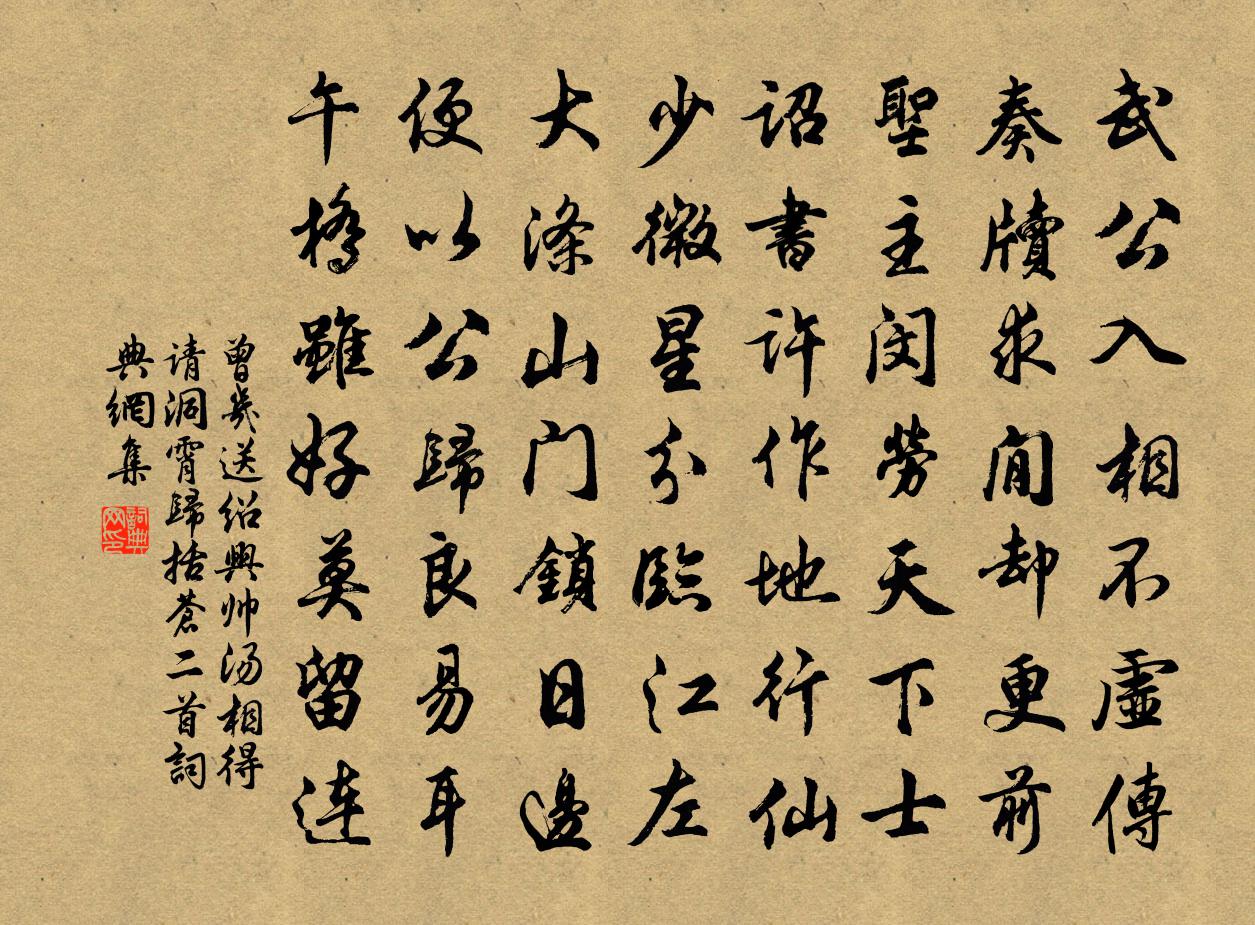 武公入相不虛傳
奏牘求閒却更前
聖主閔勞天下士
詔書許作地行仙
少微星分臨江左
大滌山门鎖日邊
便以公歸良易耳
午橋雖好莫留連
曾幾送绍興帅汤相得
请洞霄歸括蒼二首詞
典網集
詞典网印